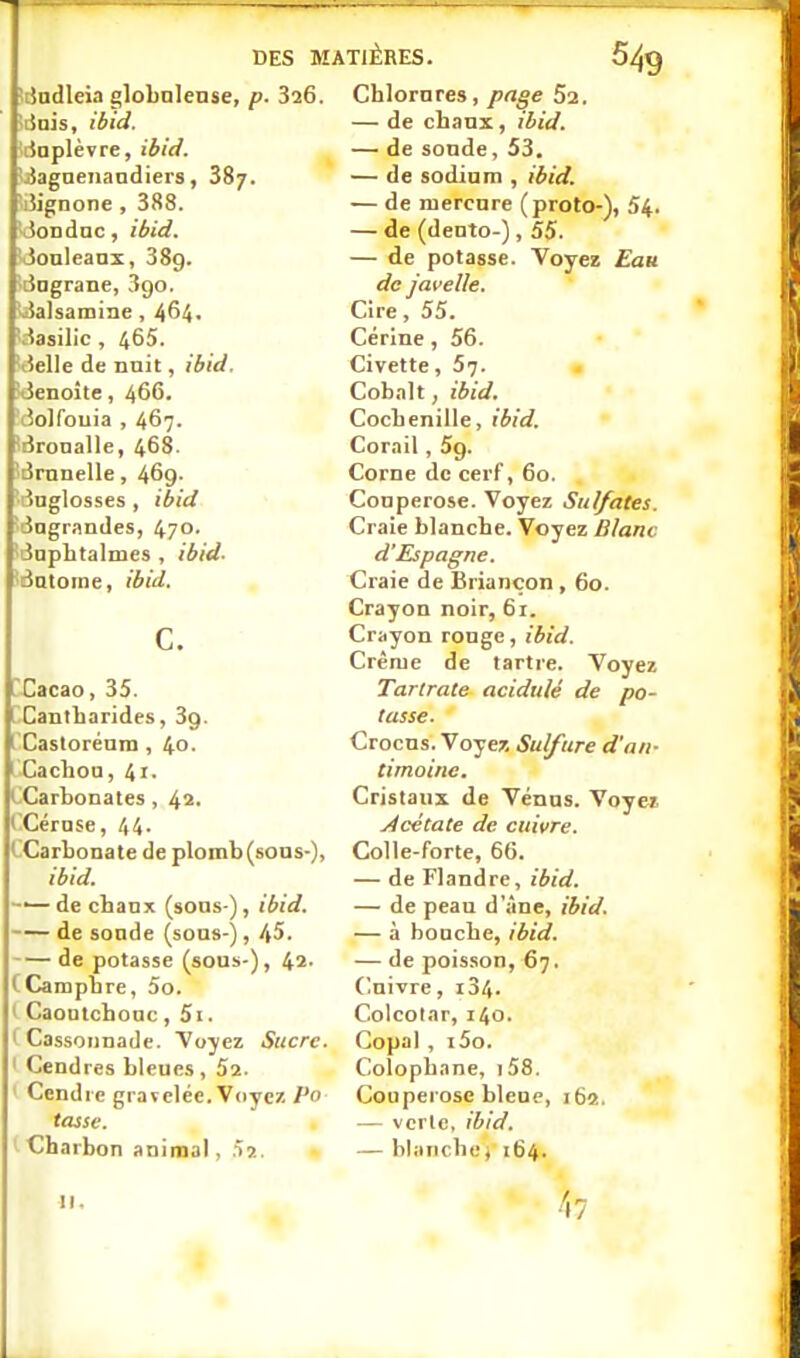 DES MATIÈRES. 549
Budleia globuleuse, p. 326.
Buis, ibid.
Buplèvre, ibid.
Baguenaudiers, 387.
Bignone, 388.
Bonduc, ibid.
Bouleaux, 389.
Bugrane, 390.
Balsamine, 464.
Basilic, 465.
Belle de nuit, ibid.
Benoîte, 466.
Bolfouia, 467.
Broualle, 468.
Brunelle, 469.
Buglosses, ibid
Bugrandes, 470.
Buphtalmes, ibid.
Butome, ibid.
C.
Cacao, 35.
Cantharides, 39.
Castoréum, 40.
Cachou, 41.
Carbonates, 42.
Céruse, 44.
Carbonate de plomb (sous-),
ibid.
— de chaux (sous-), ibid.
— de soude (sous-), 45.
— de potasse (sous-), 42.
Camphre, 50.
Caoutchouc, 51.
Cassonnade. Voyez Sucre.
Cendres bleues, 52.
Cendre gravelée. Voyez Po
tasse.
Charbon animal, 52.
II.
Chlorures, page 52.
— de chaux, ibid.
— de soude, 53.
— de sodium, ibid.
— de mercure (proto-), 54.
— de (deuto-), 55.
— de potasse. Voyez Eau
de javelle.
Cire, 55.
Cérine, 56.
Civette, 57.
Cobalt, ibid.
Cochenille, ibid.
Corail, 59.
Corne de cerf, 60.
Couperose. Voyez Sulfates.
Craie blanche. Voyez Blanc
d'Espagne.
Craie de Briançon, 60.
Crayon noir, 61.
Crayon rouge, ibid.
Crême de tartre. Voyez
Tartrate acidulé de po-
tasse.
Crocus. Voyez Sulfure d'an-
timoine.
Cristaux de Vénus. Voyez
Acétate de cuivre.
Colle-forte, 66.
— de Flandre, ibid.
— de peau d'âne, ibid.
— à bouche, ibid.
— de poisson, 67.
Cuivre, 134.
Colcotar, 140.
Copal, 150.
Colophane, 158.
Couperose bleue, 162.
— verte, ibid.
— blanche, 164.
47